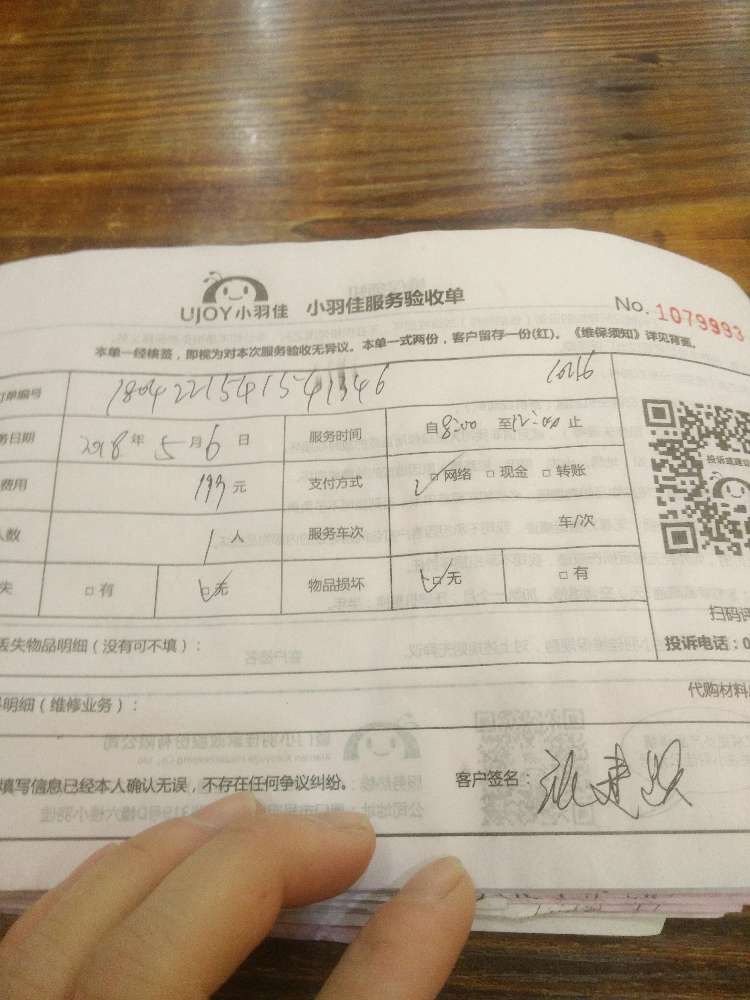 UJOY小羽佳 小羽佳服务验收单 No. 1079993
本单一经核签，即视为对本次服务验收无异议。本单一式两份，客户留存一份(红)。《维保须知》详见背面。
订单编号 1804221541541346 10216
务日期 2018年 5月6日 服务时间 自8:00 至12:00 止
费用 193元 支付方式 ☑网络 □现金 □转账
人数 1人 服务车次 车/次
失 □有 ☑无 物品损坏 ☑无 □有
投诉或建议
扫码评
丢失物品明细（没有可不填）： 投诉电话：0
明细（维修业务）： 代购材料
填写信息已经本人确认无误，不存在任何争议纠纷。 客户签名：